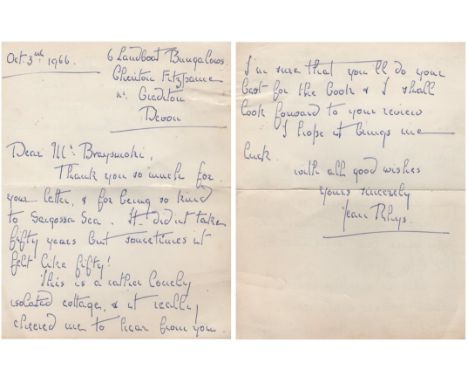 Oct 3rd. 1966.
6 Landboat Bungalows
Cheriton Fitzpaine
nr. Crediton
Devon
Dear Mr. Braysmoski,
Thank you so much for
your letter, & for being so kind
to Sargossa Sea. It didn't take
fifty years but sometimes it
felt like fifty!
This is a rather lonely
isolated cottage, & it really
cheered me to hear from you.
I'm sure that you'll do your
best for the book & I shall
look forward to your review
I hope it brings me
luck.
with all good wishes
yours sincerely
Jean Rhys